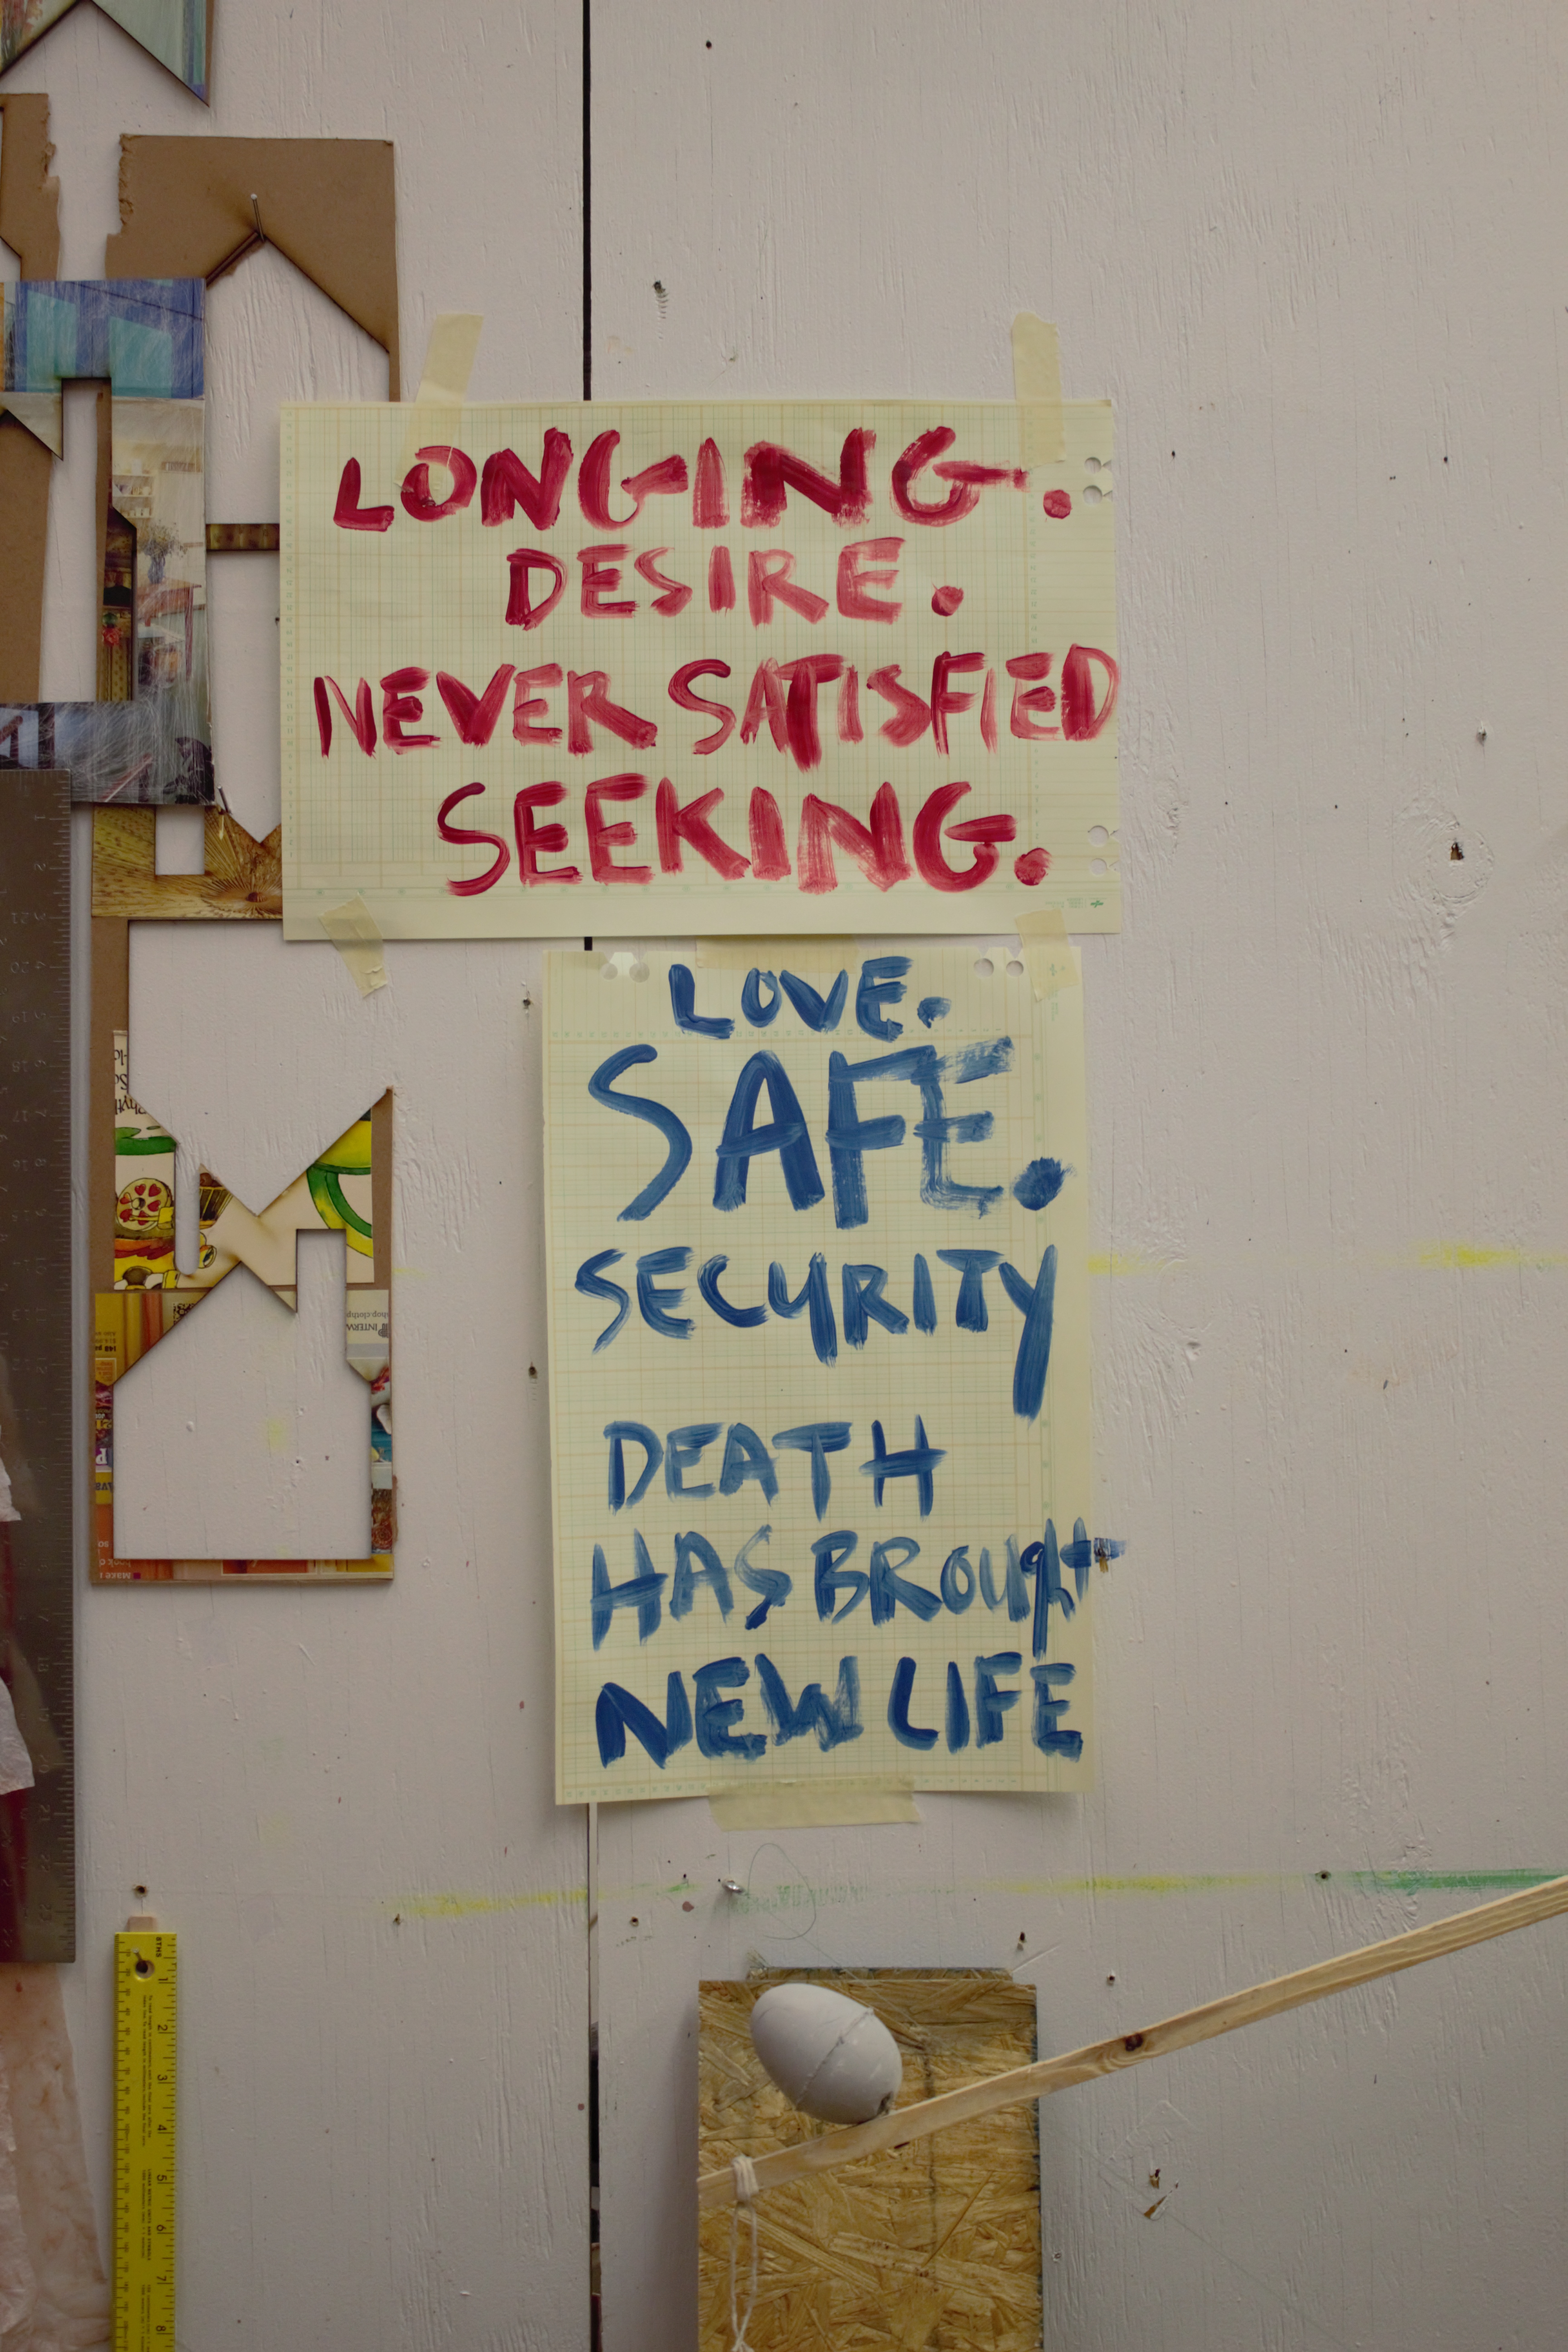 LONGING.
DESIRE.
NEVER SATISFIED
SEEKING.
LOVE.
SAFE.
SECURITY
DEATH
HAS BROUght
NEW LIFE